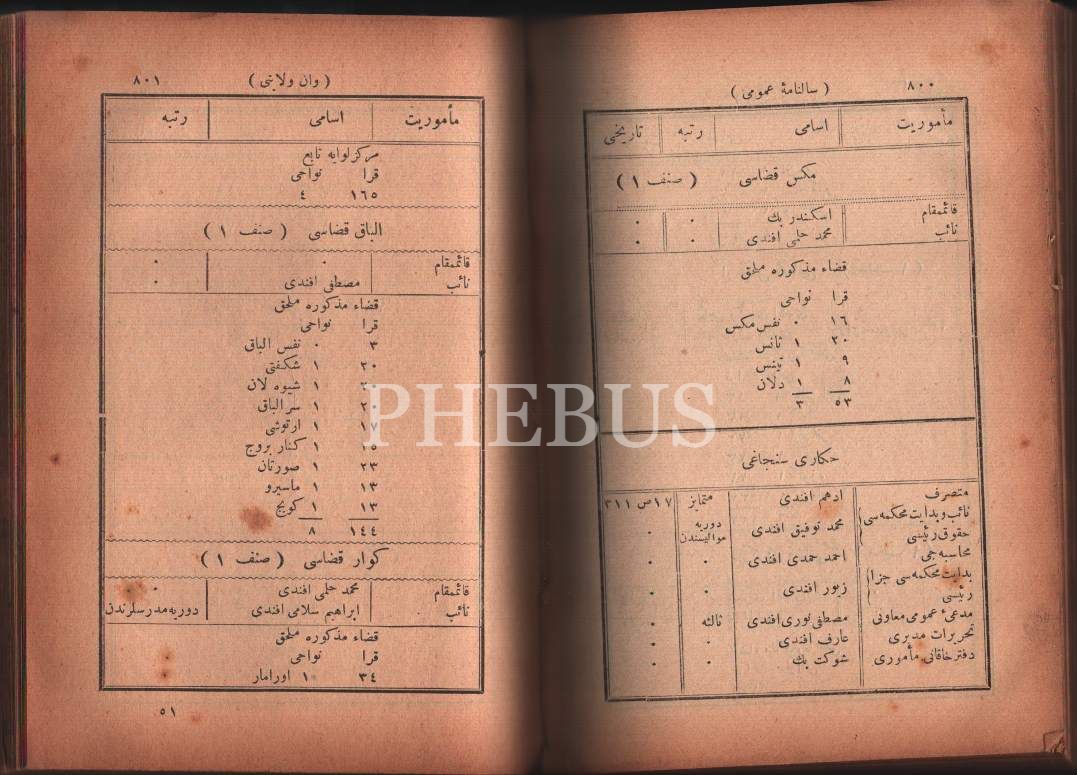 ٨٠٠ ( سالنامهٔ عمومی )
مأموریت اسامی رتبه تاریخی
مکس قضاسی ( صنف ١ )
قائممقام اسکندر بك ٠ ٠
نائب محمد حلمی افندی ٠ ٠
قضاء مذکوره ملحق
قرا نواحی
١٦ ٠ نفس مکس
٢٠ ١ ثانس
٩ ١
٨ ١ دلان
٥٣ ٣
حکاری سنجاغی
متصرف ادهم افندی متمایز ١٧ ص ٣١١
نائب و بدایت محکمه‌سی حقوق رئیسی محمد توفیق افندی دوریه موالیسندن ٠
محاسبه‌جی احمد حمدی افندی ٠ ٠
بدایت محکمه‌سی جزا رئیسی زیور افندی ٠
مدعیٔ عمومی معاونی مصطفی نوری افندی ثالثه ٠
تحریرات مدیری عارف افندی ٠ ٠
دفتر خاقانی مأموری شوکت بك ٠ ٠
( وان ولایتی ) ٨٠١
مأموریت اسامی رتبه
مرکز لوایه تابع
قرا نواحی
١٦٥ ٤
الباق قضاسی ( صنف ١ )
قائممقام ٠ ٠
نائب مصطفی افندی ٠
قضاء مذکوره ملحق
قرا نواحی
٣ ٠ نفس الباق
٢٠ ١ شکفتی
١ شیوه لان
٢٠ ١ سر الباق
١٧ ١ ارتوشی
١٥ ١ کنار بروج
٢٣ ١ صورتان
١٣ ١ ماسیرو
١٣ ١ کویج
١٤٤ ٨
کوار قضاسی ( صنف ١ )
قائممقام محمد حلمی افندی ٠
نائب ابراهیم سلامی افندی دوریه مدرسلرندن
قضاء مذکوره ملحق
قرا نواحی
٣٤ ١ اورامار
٥١
PHEBUS